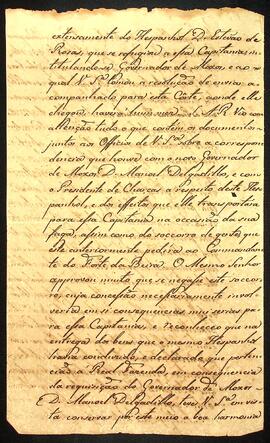 extensamente do Hespanhol D. Estevão de
Rosas, que se refugiára a essa Capitania in-
titulandose Governador de Moxos, e ao
qual V. Sª. tomou a resolução de enviar a-
companhado para esta Côrte, aonde elle
chegou, haverá hum mez. S. A. R. vio com
attenção tudo o que contem os documentos
juntos aos Officios de V. Sª. sobre a correspon-
dencia que houve com o novo Governador
de Moxos D. Manoel Delgadilho, e com
o Presidente de Charcas a respeito deste Hes-
panhol, e dos effeitos que elle transportára
para essa Capitania na occasião da sua
fuga, assim como do soccorro de gente que
elle anteriormente pedira ao Commandan-
te do Forte da Beira. O Mesmo Senhor
approvou muito que se negasse este soccor-
ro, cuja concessão necessariamente invol-
veria em si consequencias mui serias pa-
ra essa Capitania; e reconheceo que na
entrega dos bens que o mesmo Hespanhol
havia conduzido, e declarado que perten-
cião á Real Fazenda, em consequencia
da requisição do Governador de Moxos
D. Manoel Delgadilho, teve V. Sª. em vis-
ta conservar por este meio a boa harmonia